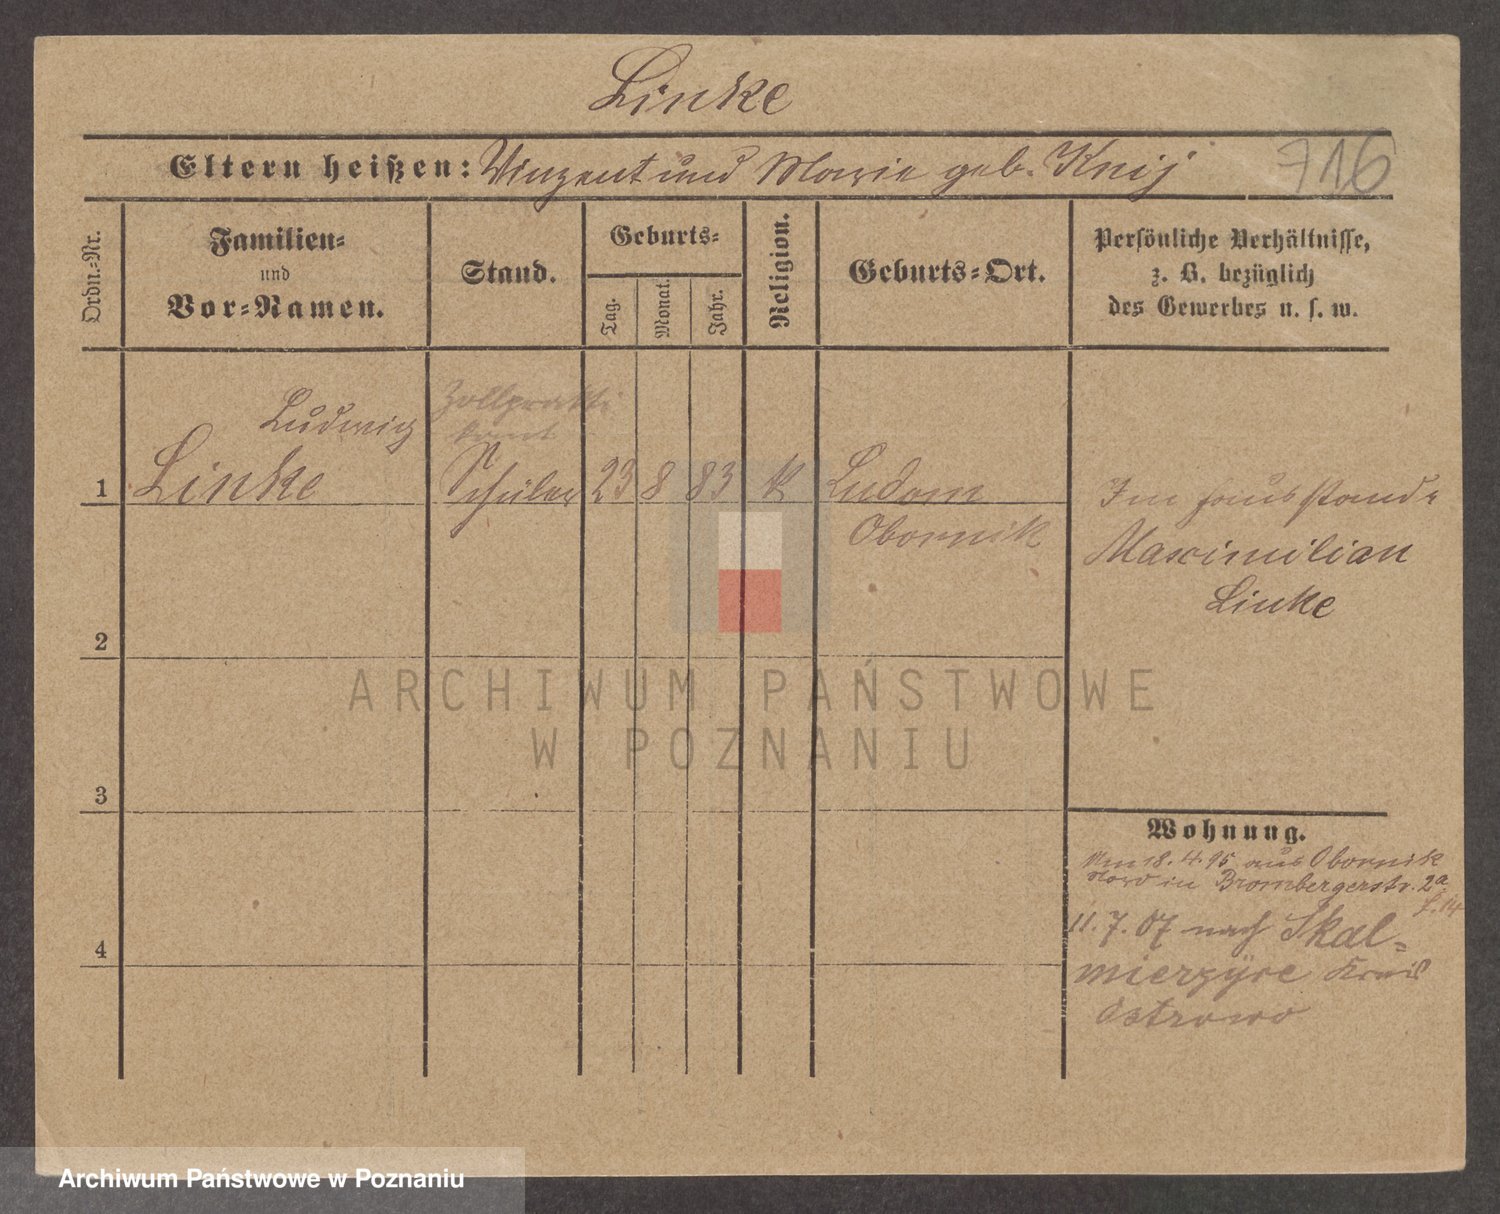 Linke
Eltern heißen: Vinzent und Marie geb. Knij
716
Ordn.-Nr.
Familien-
und
Vor-Namen.
Stand.
Geburts-
Tag.
Monat.
Jahr.
Religion.
Geburts-Ort.
Persönliche Verhältnisse,
z. B. bezüglich
des Gewerbes u. s. w.
Ludwig
Zollprakti
kant
1 Linke Schüler 23 8 83 k Ludom
Obornik
Im Hausstande
Maximilian
Linke
2
3
4
Wohnung.
Am 18.4.95 aus Obornik
in Brombergerstr. 2a
11.7.07 nach Skal-
mierzyce Kreis
Ostrowo
ARCHIWUM PAŃSTWOWE
W POZNANIU
Archiwum Państwowe w Poznaniu